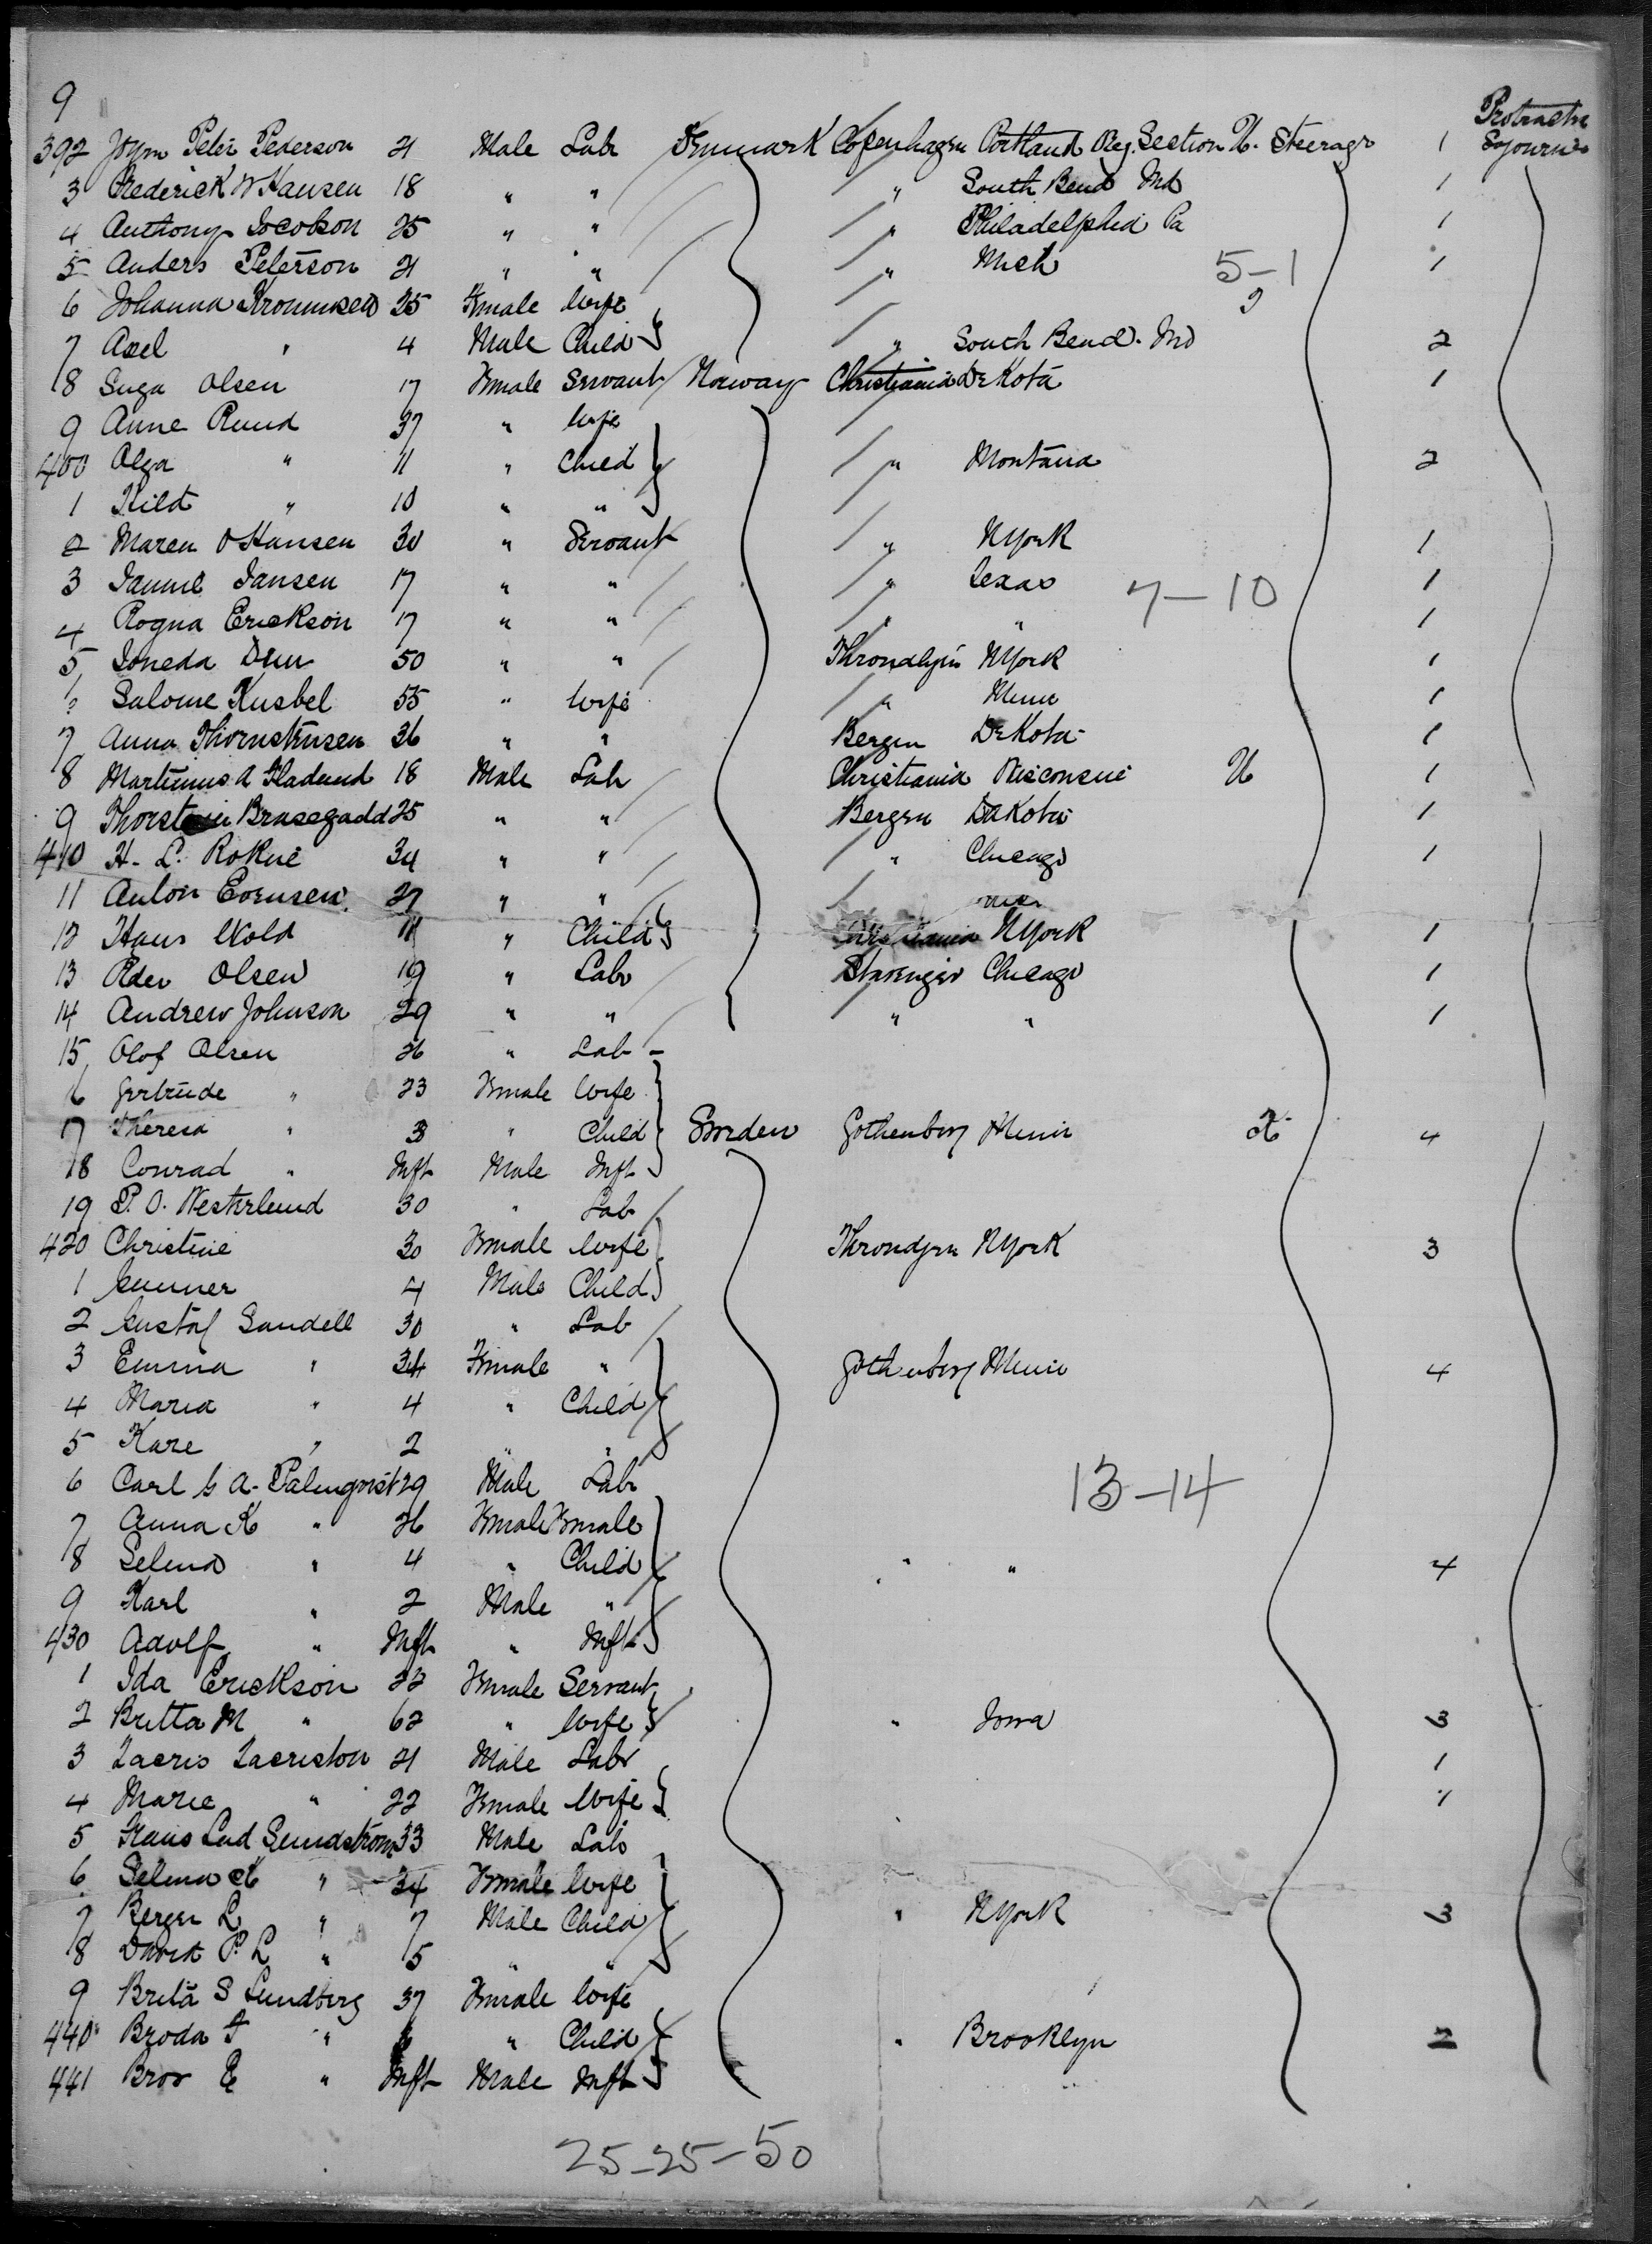 9
Protractn Sojourn
392 Peter Pederson 21 Male Lab Denmark Copenhagen Portland Reg. Section U. Steerage 1
3 Frederick W Hansen 18 " " " South Bend Ind 1
4 Anthony Jocobson 25 " " " Philadelphia Pa 1
5 Anders Peterson 21 " " " Mich 5-1 1
6 Johanna 25 Female Wife 2
7 Axel " 4 Male Child " South Bend. Ind 2
8 Inga Olsen 17 Female Servant Norway Christiania Dekota 1
9 Anne Ruud 37 " Wife
400 Olga " 11 " Child " Montana 2
1 Hild " 10 " "
2 Maren O Hansen 30 " Servant " NYork 1
3 Jansen 17 " " " Texas 7-10 1
4 Rogna Erickson 17 " " " " 1
5 50 " " Throndhjein NYork 1
6 Salome 55 " Wife " Minn 1
7 Anna Thornstensen 36 " " Bergen DeKota 1
8 Martinus A 18 Male Lab Christiania Wisconsin U 1
9 25 " " Bergen Dakota 1
410 H. L. Rokne 34 " " " Chicago 1
11 Anton 27 " "
12 Hans Wold 11 " Child Christiania NYork 1
13 Peder Olsen 19 " Labr Stavenger Chicago 1
14 Andrew Johnson 29 " " " " 1
15 Olof Olsen 26 " Lab
6 Gertrude " 23 Female Wife
17 Theresa " 3 " Child Sweden Gothenberg Minn 4
18 Conrad " Inft Male Inft
19 P. O. Westerlund 30 " Lab
420 Christine 30 Female Wife Throndjen NYork 3
1 Gunner 4 Male Child
2 Gustaf Sandell 30 " Lab
3 Emma " 34 Female " Gothenberg Minn 4
4 Maria " 4 " Child
5 Kare " 2 " "
6 Carl G A. Palmqvist 29 Male Labr 13-14
7 Anna K " 26 Female Female
8 Selma " 4 " Child " " 4
9 Karl " 2 Male "
430 Adolf " Inft " Inft
1 Ida Erickson 22 Female Servant
2 Britta M " 62 " Wife " Iowa 3
3 21 Male Labr 1
4 Marie " 22 Female Wife 1
5 Sundstrom 33 Male Lab
6 Selma " 34 Female Wife
7 Berger L " 7 Male Child " NYork 3
8 P. L " 5 " "
9 Brita S Lundberg 37 Female Wife
440 Broda " " Child " Brooklyn 2
441 Bror E " Inft Male Inft
25-25-50